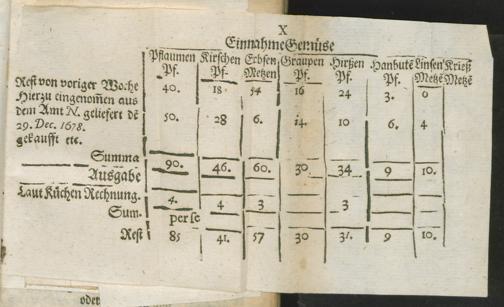 X
Einnahme Gemüse
Pflaumen Kirschen Erbsen Graupen Hirßen Hanbute Linsen Krieß
Pf. Pf. Metzen Pf. Pf. Pf. Metzẽ Metzẽ
Rest von voriger Woche 40. 18 54 16 24 3. 6
Hierzu eingenom̃en aus
dem Amt N. geliefert dẽ 50. 28 6. 14. 10 6. 4
29. Dec. 1678.
gekaufft etc.
Summa 90. 46. 60. 30 34 9 10.
Ausgabe
Laut Küchen Rechnung. 4. 4 3 3
Sum. per se
Rest 85 41. 57 30 31. 9 10.
oder